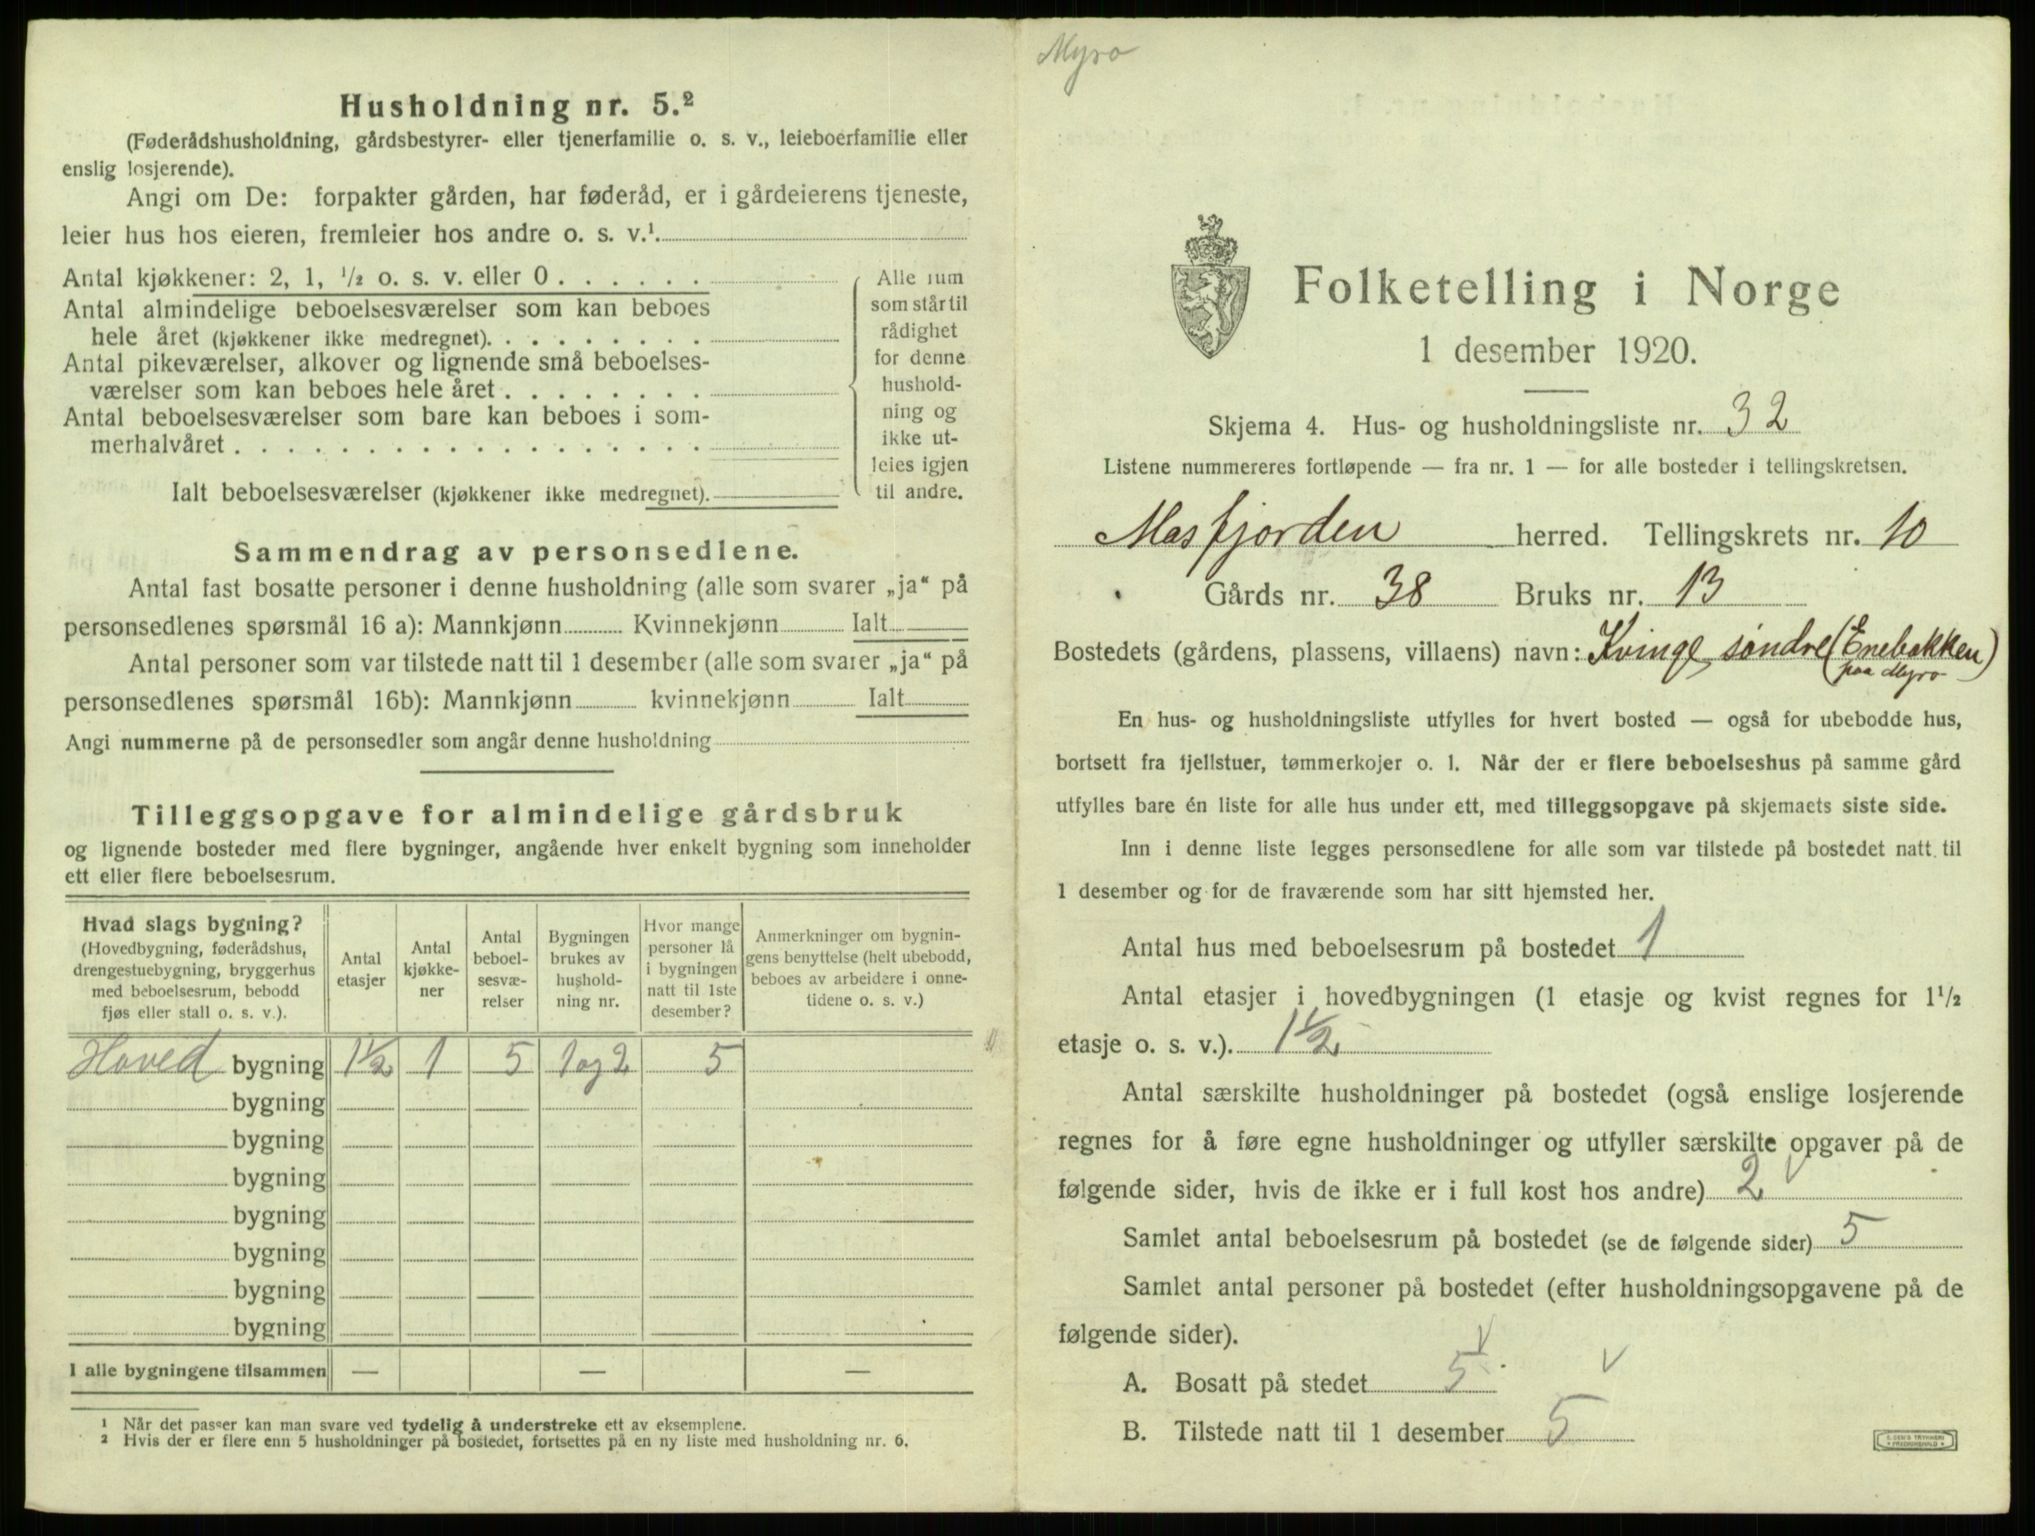 Husholdning nr. 5.²
(Føderådshusholdning, gårdsbestyrer- eller tjenerfamilie o. s. v., leieboerfamilie eller
enslig losjerende).
Angi om De: forpakter gården, har føderåd, er i gårdeierens tjeneste,
leier hus hos eieren, fremleier hos andre o. s. v.¹
Antal kjøkkener: 2, 1, ½ o. s. v. eller 0
Antal almindelige beboelsesværelser som kan beboes
hele året (kjøkkener ikke medregnet)
Antal pikeværelser, alkover og lignende små beboelses-
værelser som kan beboes hele året
Antal beboelsesværelser som bare kan beboes i som-
merhalvåret
Ialt beboelsesværelser (kjøkkener ikke medregnet)
Alle rum
som står til
rådighet
for denne
hushold-
ning og
ikke ut-
leies igjen
til andre.
Sammendrag av personsedlene.
Antal fast bosatte personer i denne husholdning (alle som svarer „ja“ på
personsedlenes spørsmål 16 a): Mannkjønn Kvinnekjønn Ialt
Antal personer som var tilstede natt til 1 desember (alle som svarer „ja“ på
personsedlenes spørsmål 16b): Mannkjønn kvinnekjønn Ialt
Angi nummerne på de personsedler som angår denne husholdning
Tilleggsopgave for almindelige gårdsbruk
og lignende bosteder med flere bygninger, angående hver enkelt bygning som inneholder
ett eller flere beboelsesrum.
Hvad slags bygning?
(Hovedbygning, føderådshus,
drengestuebygning, bryggerhus
med beboelsesrum, bebodd
fjøs eller stall o. s. v.).
Antal
etasjer
Antal
kjøkke-
ner
Antal
beboel-
sesvæ-
relser
Bygningen
brukes av
hushold-
ning nr.
Hvor mange
personer lå
i bygningen
natt til 1ste
desember?
Anmerkninger om bygnin-
gens benyttelse (helt ubebodd,
beboes av arbeidere i onne-
tidene o. s. v.)
Hoved bygning 1½ 1 5 1 og 2 5
bygning
bygning
bygning
bygning
bygning
bygning
bygning
I alle bygningene tilsammen — — —
¹ Når det passer kan man svare ved tydelig å understreke ett av eksemplene.
² Hvis der er flere enn 5 husholdninger på bostedet, fortsettes på en ny liste med husholdning nr. 6.
Myro
Folketelling i Norge
1 desember 1920.
Skjema 4. Hus- og husholdningsliste nr. 32
Listene nummereres fortløpende — fra nr. 1 — for alle bosteder i tellingskretsen.
Masfjorden herred. Tellingskrets nr. 10
Gårds nr. 38 Bruks nr. 13
Bostedets (gårdens, plassens, villaens) navn: Kvinge søndre (Enebakken
paa Myro)
En hus- og husholdningsliste utfylles for hvert bosted — også for ubebodde hus,
bortsett fra fjellstuer, tømmerkojer o. l. Når der er flere beboelseshus på samme gård
utfylles bare én liste for alle hus under ett, med tilleggsopgave på skjemaets siste side.
Inn i denne liste legges personsedlene for alle som var tilstede på bostedet natt til
1 desember og for de fraværende som har sitt hjemsted her.
Antal hus med beboelsesrum på bostedet 1
Antal etasjer i hovedbygningen (1 etasje og kvist regnes for 1½
etasje o. s. v.). 1½
Antal særskilte husholdninger på bostedet (også enslige losjerende
regnes for å føre egne husholdninger og utfyller særskilte opgaver på de
følgende sider, hvis de ikke er i full kost hos andre) 2
Samlet antal beboelsesrum på bostedet (se de følgende sider) 5
Samlet antal personer på bostedet (efter husholdningsopgavene på de
følgende sider).
A. Bosatt på stedet 5
B. Tilstede natt til 1 desember 5